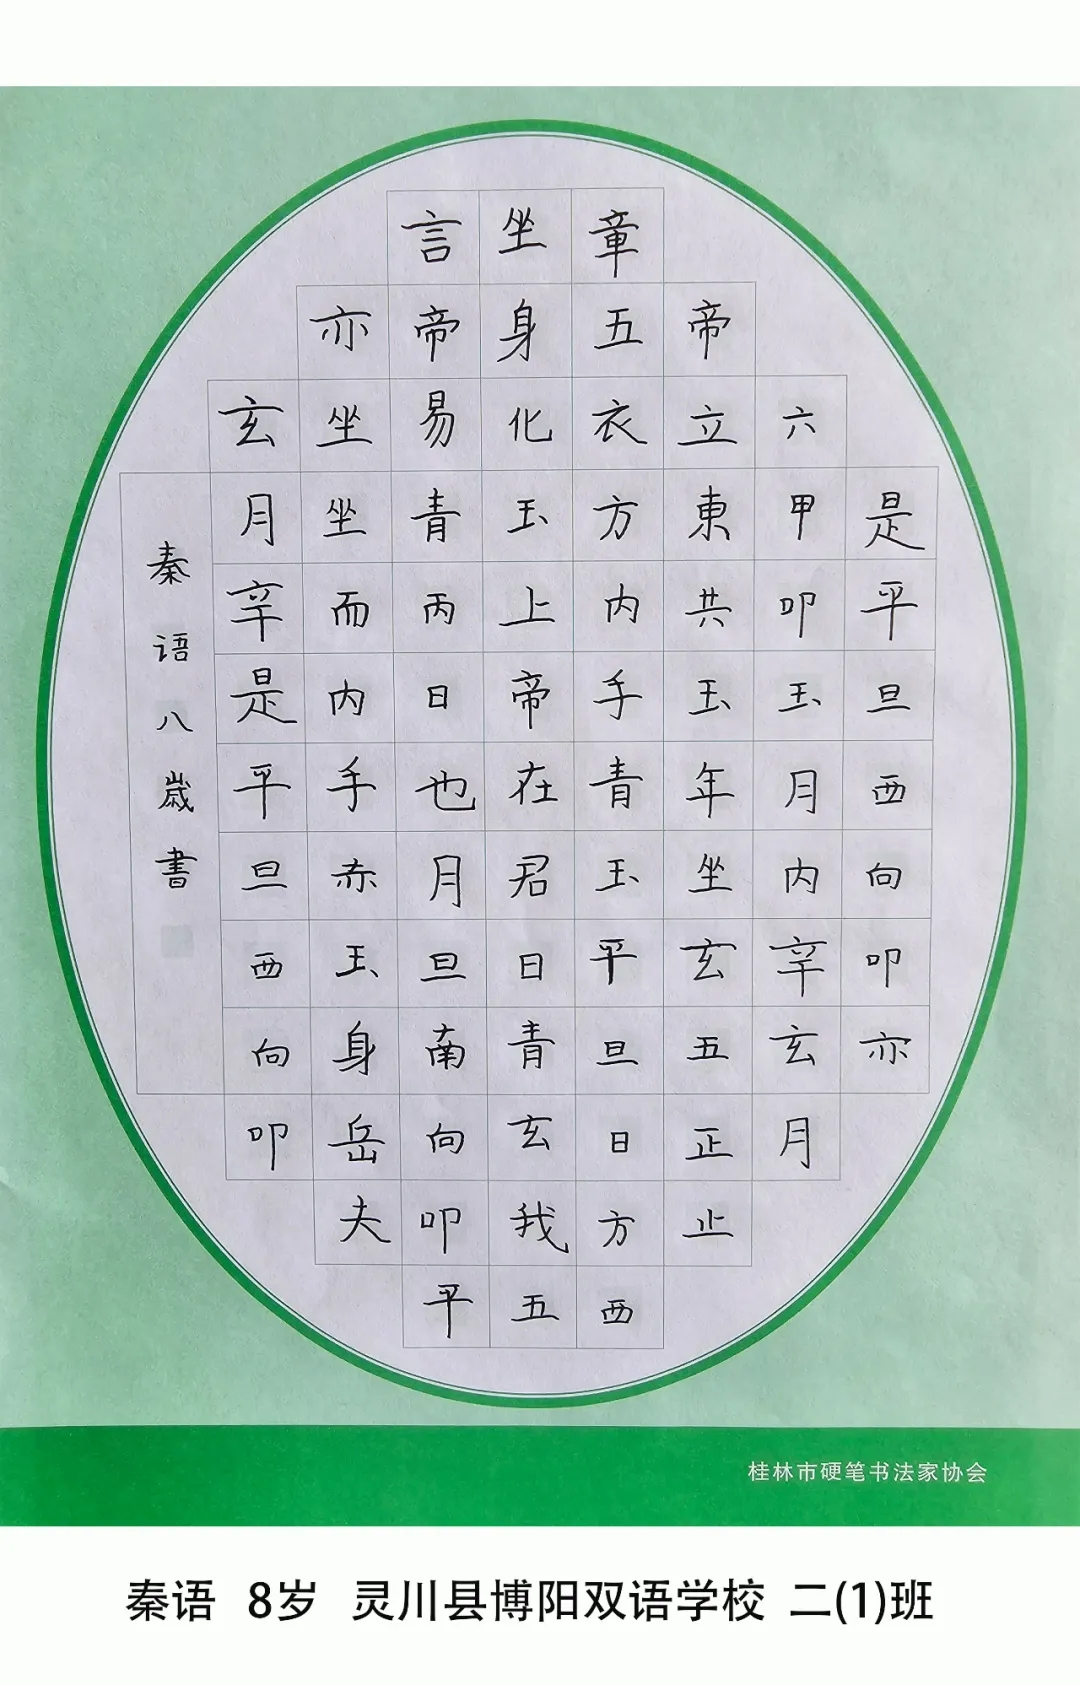 是平旦西向叩亦
六甲叩玉月内辛玄月
帝立東共玉年坐玄五正止
章五衣方内手青玉平旦日方西
坐身化玉上帝在君日青玄我五
言帝易青丙日也月旦南向叩平
亦坐坐而内手赤玉身岳夫
玄月辛是平旦西向叩
秦语八歲書
桂林市硬笔书法家协会
秦语 8岁 灵川县博阳双语学校 二(1)班